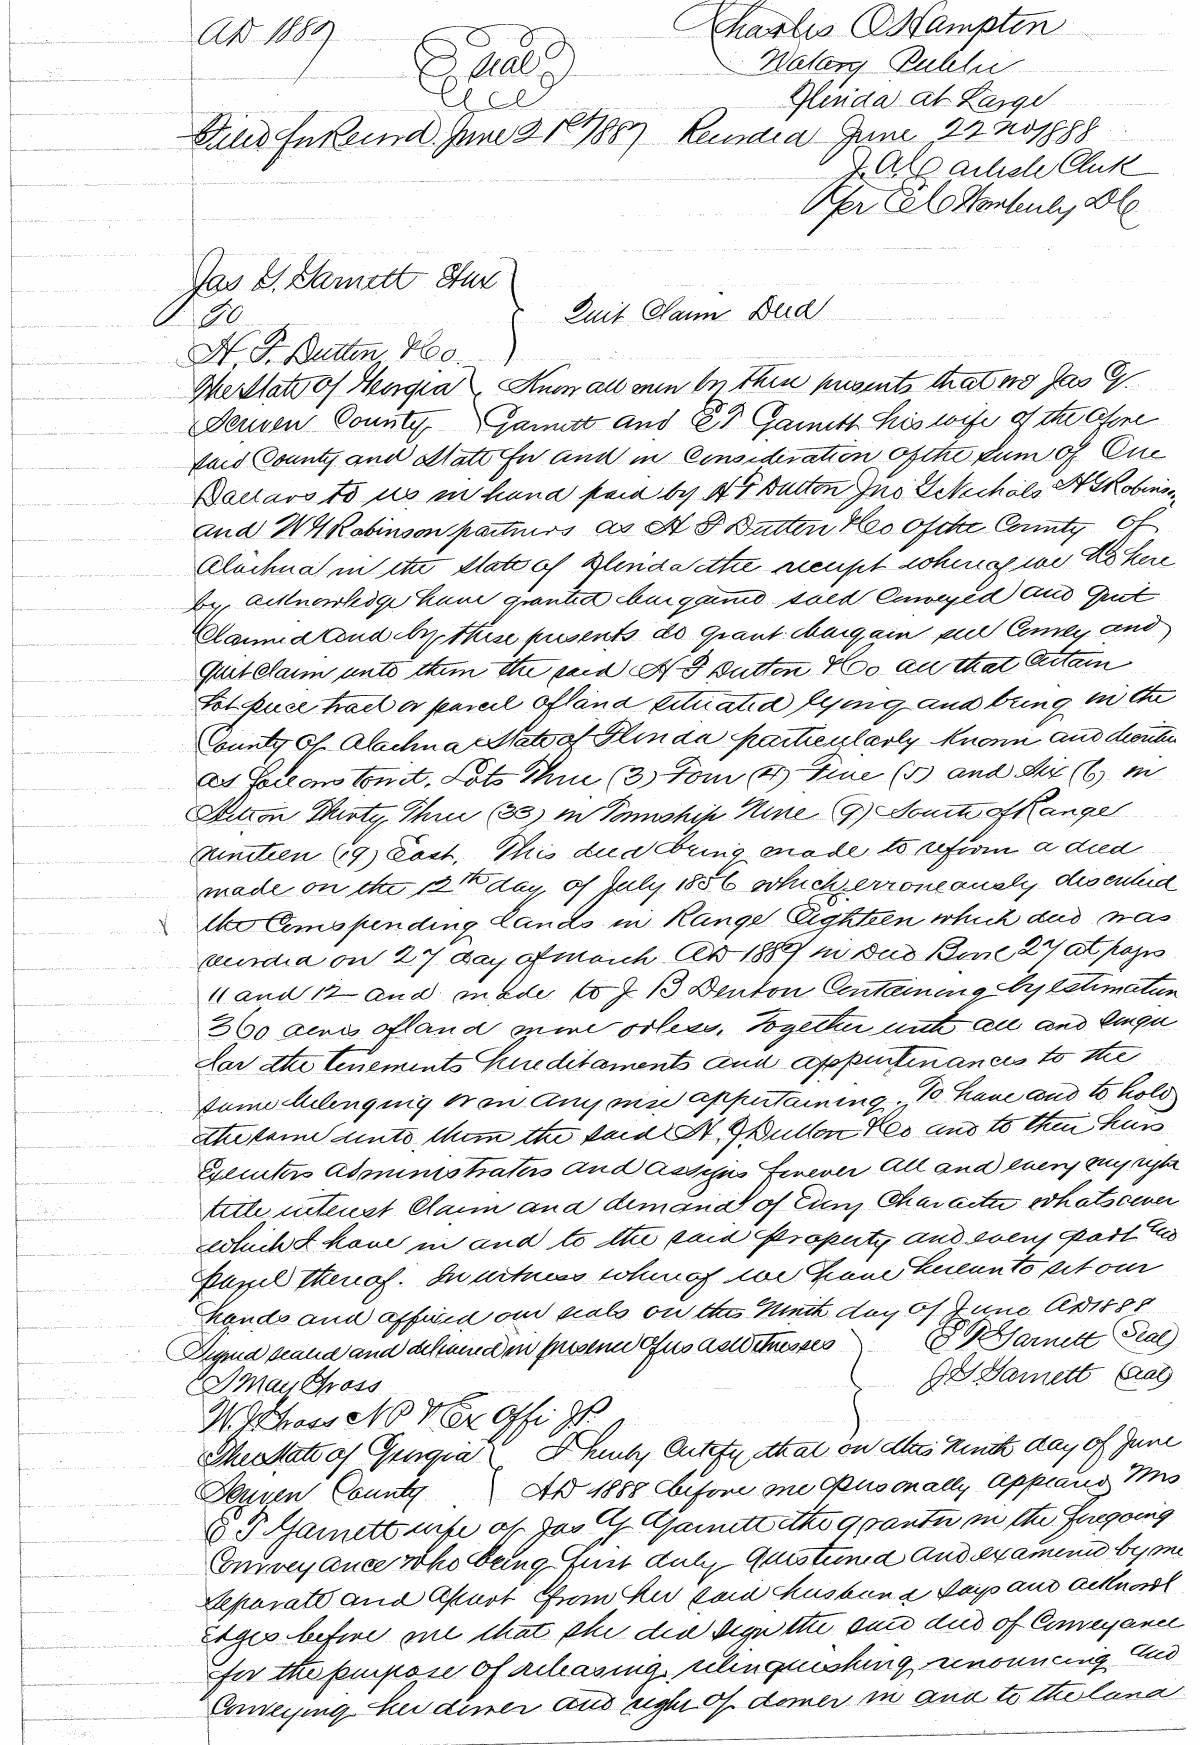 AD 1889
Charles O Hampton
Seal
Notary Public
Florida at Large
Filed for Record June 21st 1889 Recorded June 22nd 1888
J. A. Carlisle Clerk
Per
Jas G. Garnett & ux
To
Quit Claim Deed
H. F. Dutton & Co.
The State of Georgia Know all men by these presents that we Jas G.
Scriven County Garnett and E P Garnett his wife of the afore
said County and State for and in Consideration of the sum of One
Dollars to us in hand paid by H F Dutton Jno G Nichols W G Robinson
and W G Robinson partners as H F Dutton & Co of the County of
Alachua in the State of Florida the receipt whereof we do here
by acknowledge have granted bargained sold Conveyed and Quit
Claimed and by these presents do grant bargain sell Convey and
Quit Claim unto them the said H F Dutton & Co all that Certain
Lot piece tract or parcel of land situated lying and being in the
County of Alachua State of Florida particularly known and described
as follows towit. Lots Three (3) Four (4) Five (5) and Six (6) in
Section Thirty Three (33) in Township Nine (9) South of Range
nineteen (19) East. This deed being made to reform a deed
made on the 12th day of July 1886 which erroneously described
the Corresponding lands in Range Eighteen which deed was
recorded on 27 day of March AD 1889 in Deed Book 27 at pages
11 and 12 and made to J B Denton Containing by estimation
360 acres of land more or less. Together with all and singu
lar the tenements hereditaments and appurtenances to the
same belonging or in anywise appertaining. To have and to hold
the same unto them the said H. F Dutton & Co and to their heirs
Executors administrators and assigns forever all and every my right
title interest Claim and demand of every Character whatsoever
which I have in and to the said property and every part and
parcel thereof. In witness whereof we have hereunto set our
hands and affixed our seals on this Ninth day of June AD 1888
Signed sealed and delivered in presence of us as Witnesses E P Garnett (Seal)
J G Garnett (Seal)
May Gross
W. J. Gross N P & Ex Offi J.P.
The State of Georgia I hereby Certify that on this Ninth day of June
Scriven County AD 1888 before me personally appeared Mrs
E P Garnett wife of Jas G Garnett the grantor in the foregoing
Conveyance who being first duly Questioned and examined by me
separate and apart from her said husband says and acknowl
edges before me that she did sign the said deed of Conveyance
for the purpose of releasing relinquishing renouncing and
Conveying her dower and right of dower in and to the land